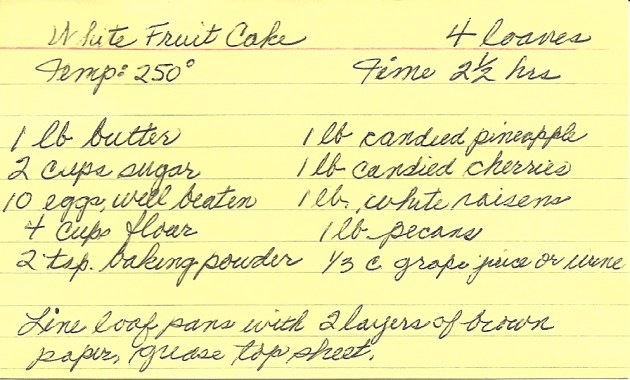 White Fruit Cake 4 loaves
Temp: 250° Time 2½ hrs
1 lb butter 1 lb candied pineapple
2 cups sugar 1 lb candied cherries
10 eggs, well beaten 1 lb. white raisens
4 cups flour 1 lb pecans
2 tsp. baking powder 1/3 c grape juice or wine
Line loaf pans with 2 layers of brown
paper, grease top sheet.